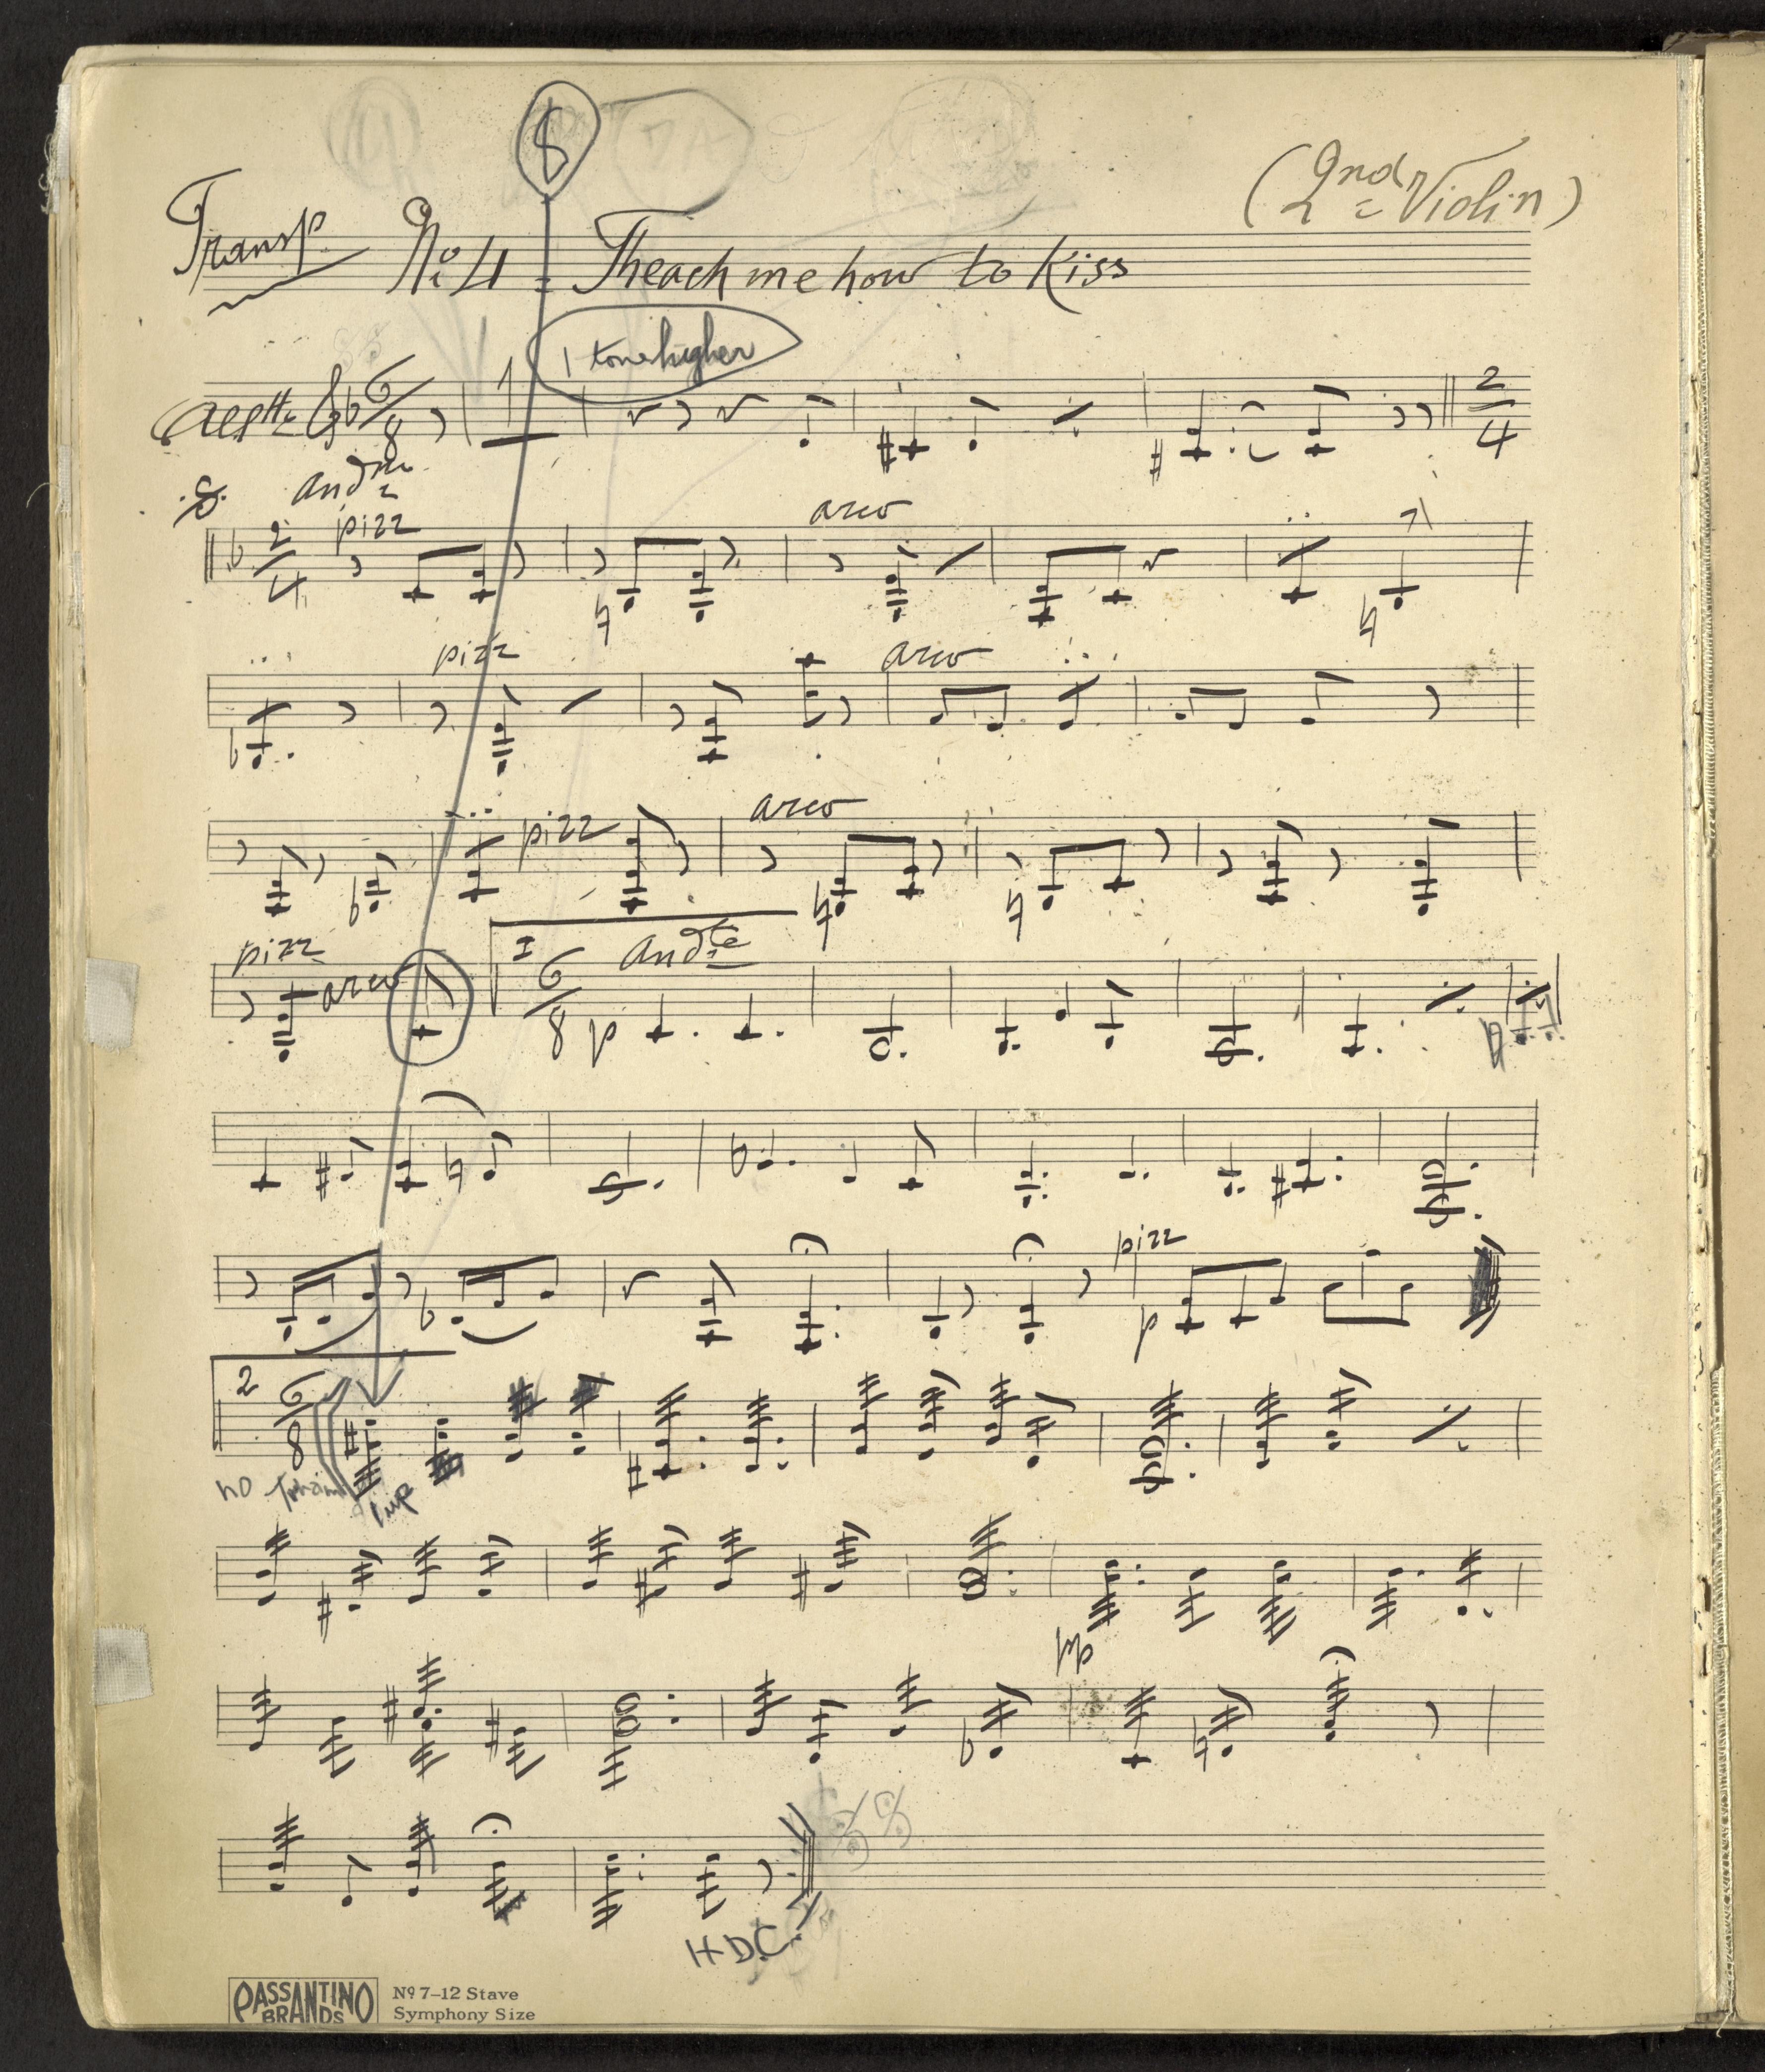 8
(2nd Violin)
Transp Nº 4 = Theach me how to Kiss
1 tone higher
Alltto 6/8 1 2/4
Andno
2/4 pizz arco
pizz arco
pizz arco
pizz arco I 6/8 Andte p
pizz
p
2 6/8
no
mp
H D.C.
PASSANTINO BRANDS
Nº 7–12 Stave
Symphony Size